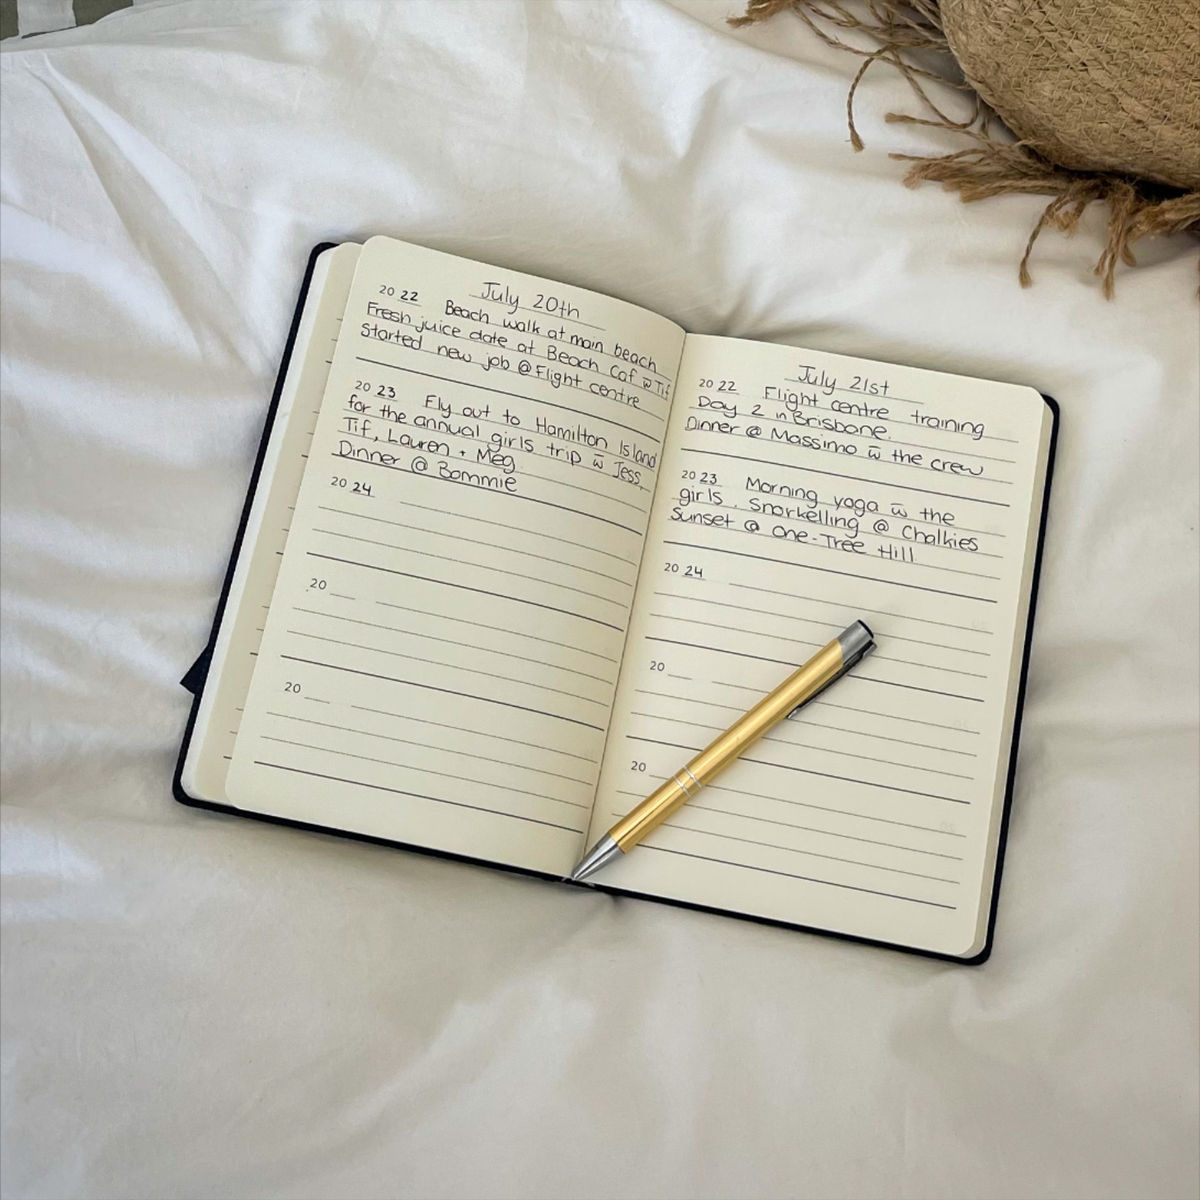 July 20th
20 22 Beach walk at main beach
Fresh juice date at Beach Caf w̄ Tif
Started new job @ Flight centre
20 23 Fly out to Hamilton Island
for the annual girls trip w̄ Jess,
Tif, Lauren + Meg.
Dinner @ Bommie
20 24
20
20
July 21st
20 22 Flight centre training
Day 2 in Brisbane.
Dinner @ Massimo w̄ the crew
20 23 Morning yoga w̄ the
girls. Snorkelling @ Chalkies
Sunset @ One-Tree Hill
20 24
20
20